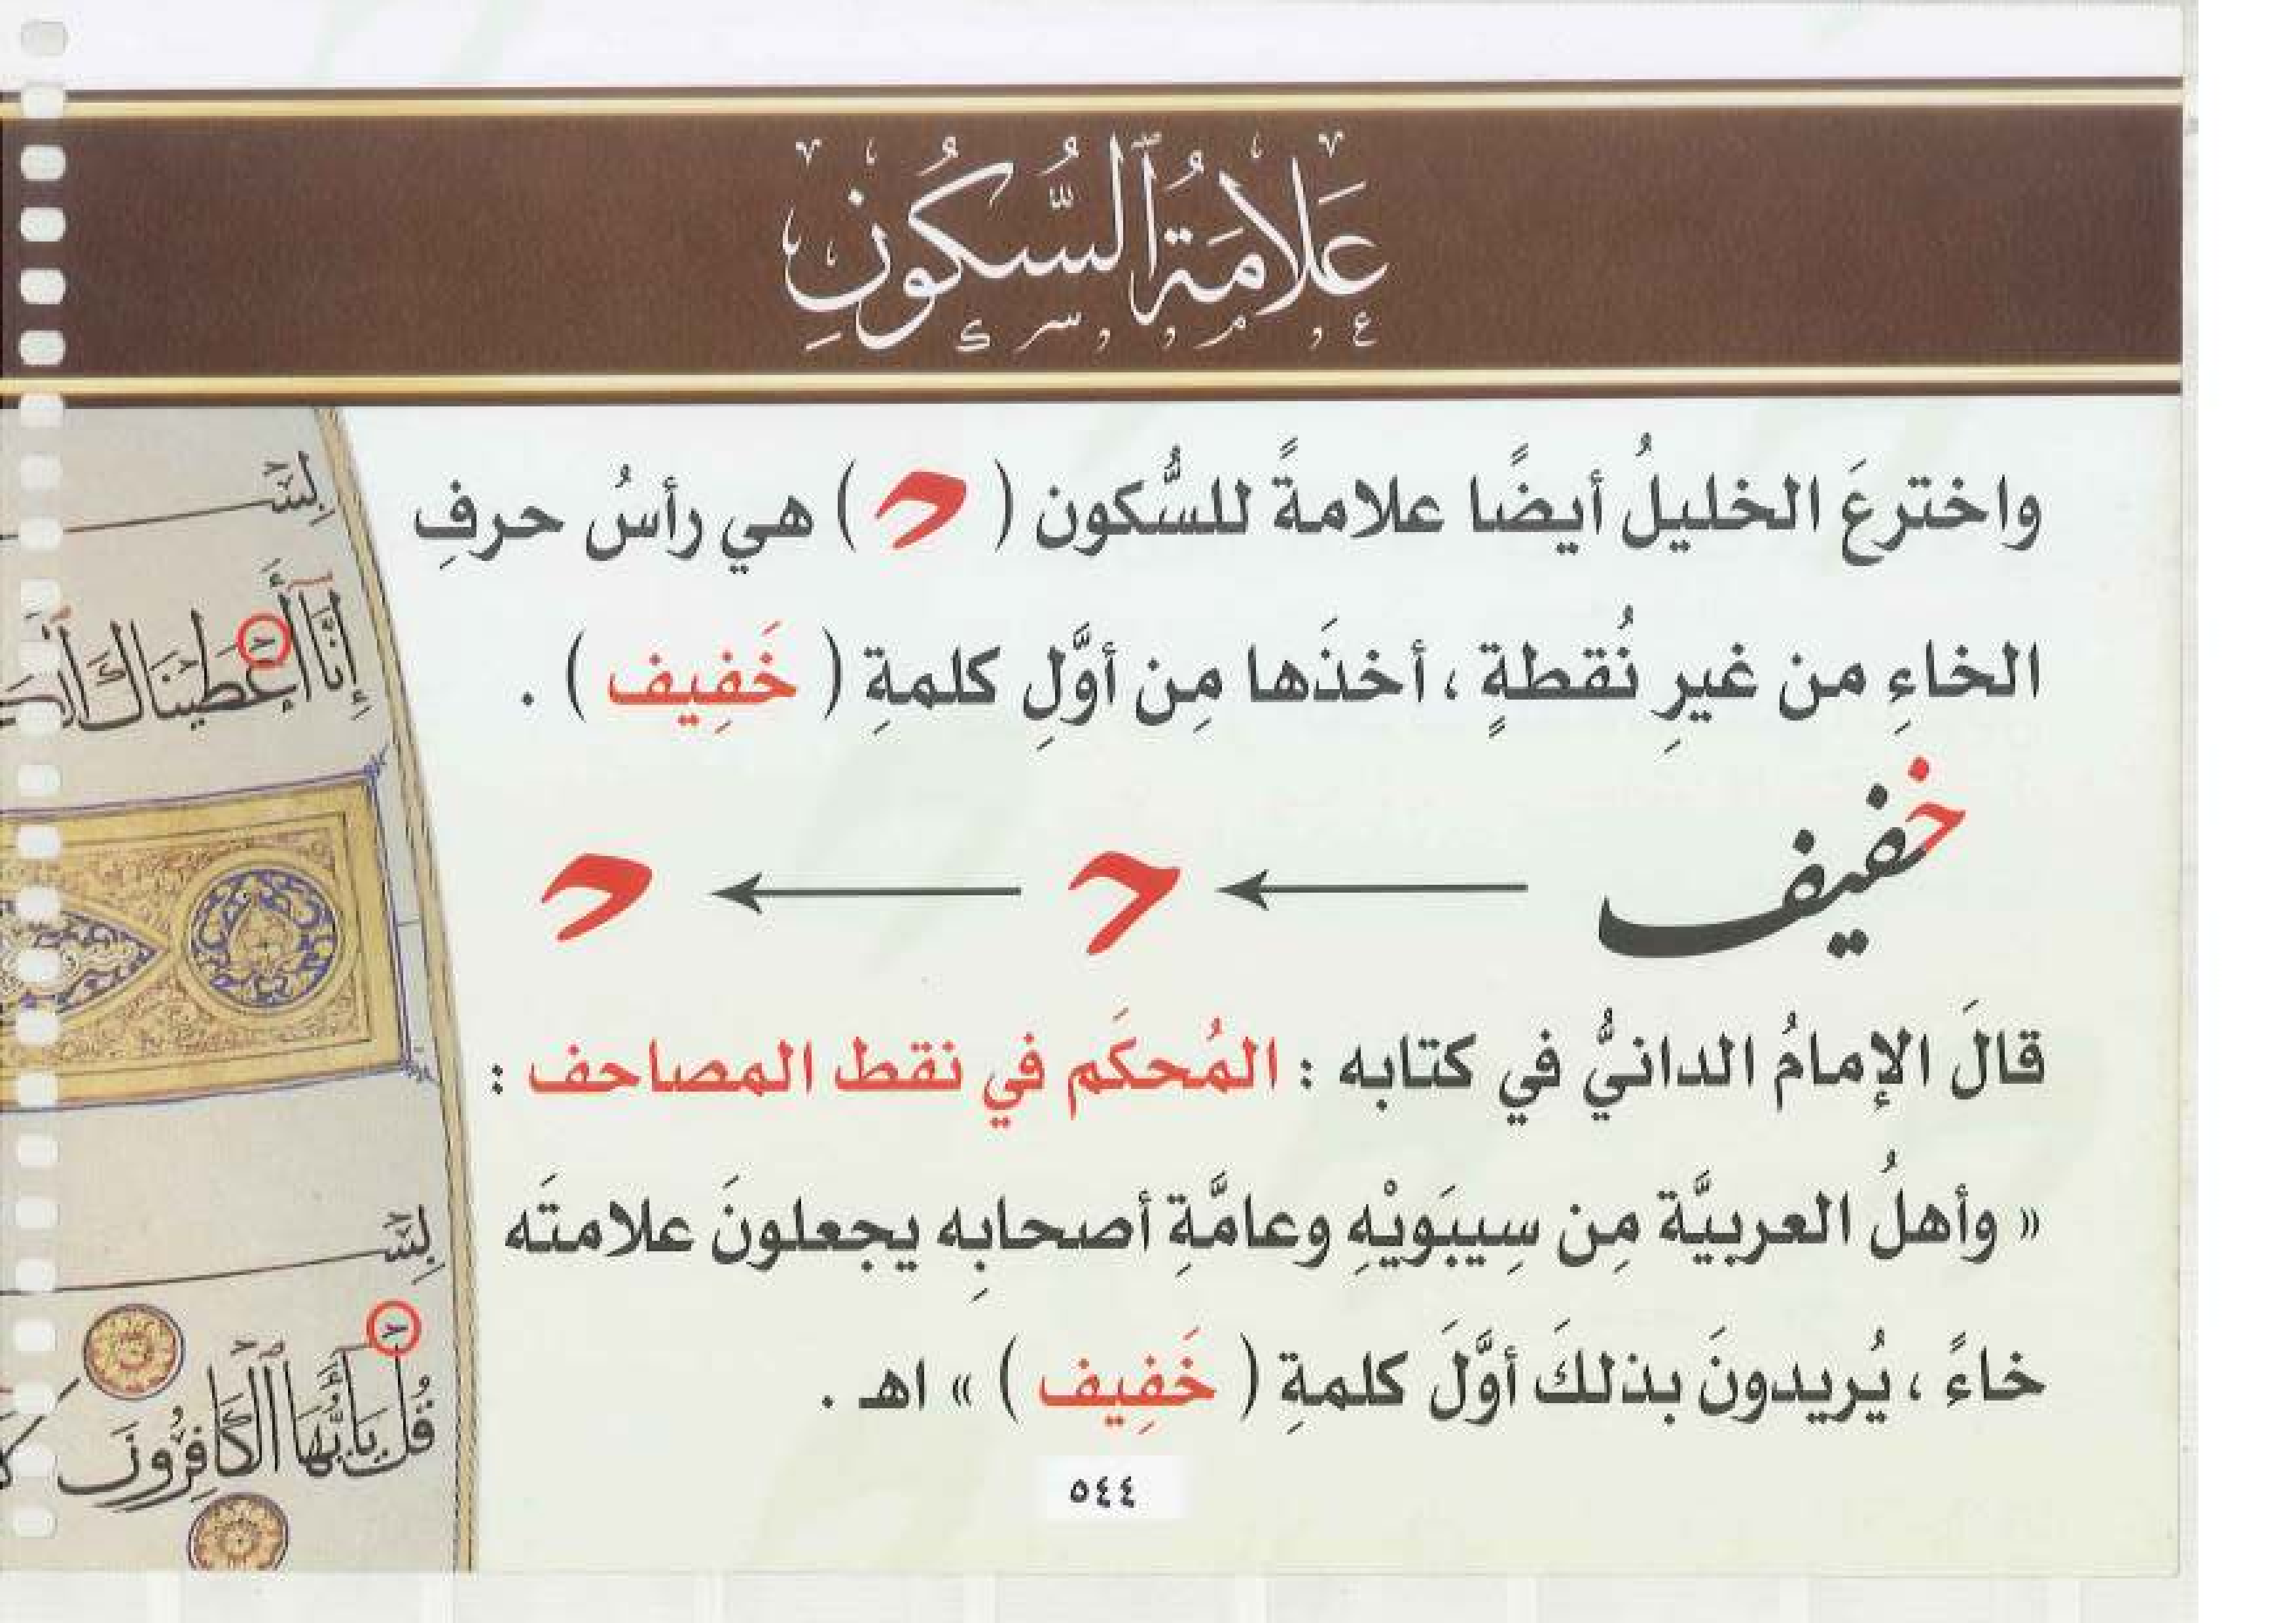 عَلَامَةُ ٱلسُّكُونِ
واخترعَ الخليلُ أيضًا علامةً للسُّكون ( ) هي رأسُ حرفِ
الخاءِ من غيرِ نُقطةٍ ، أخذَها مِن أوَّلِ كلمةِ ( خَفِيف ) .
خفيف
قالَ الإمامُ الدانيُّ في كتابه : المُحكَم في نقط المصاحف :
« وأهلُ العربيَّة مِن سِيبَويْهِ وعامَّةِ أصحابِه يجعلونَ علامتَه
خاءً ، يُريدونَ بذلكَ أوَّلَ كلمةِ ( خَفِيف ) » اهـ .
٥٤٤
بِسْ
إِنَّا أَعْطَيْنَاكَ
بِسْ
قُلْ يَا أَيُّهَا ٱلْكَافِرُونَ